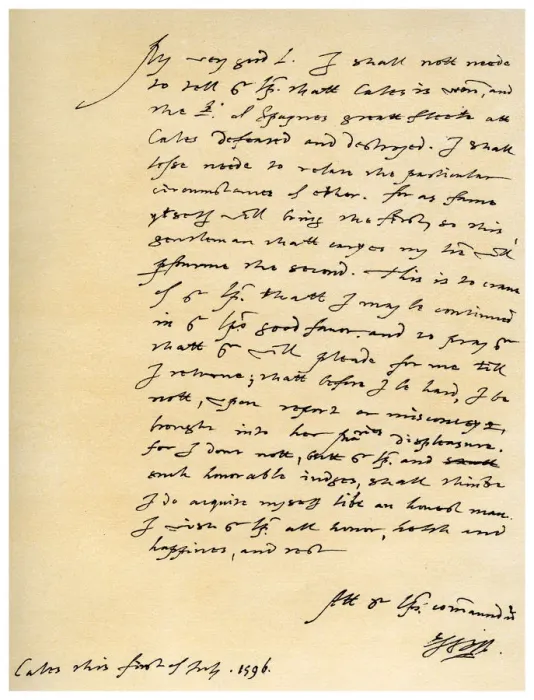 My very good L. I shall nott neede
to tell yr Lp. that Cales is wonn, and
the K. of Spaynes great fleete att
Cales defeated and destroyed. I shall
lesse neede to relate the particular
circumstances of ether. for as fame
ytself will bring the first, so this
gentleman that caryes my lre will
performe the second. This is to crave
of yr Lp. thatt I may be continued
in yr Lps good favor. and to pray yr
thatt yr will pleade for me till
I returne; thatt before I be hard, I be
nott, upon report or misconceyt,
brought into her displeasure.
for I dout nott, butt yr Lp. and
such honorable iudges, shall thinke
I do acquite myself like an honest man.
I wish yr Lp. all honor, helth and
happines, and rest
Att yr Lps. commaundt
Essex.
Cales this first of July. 1596.